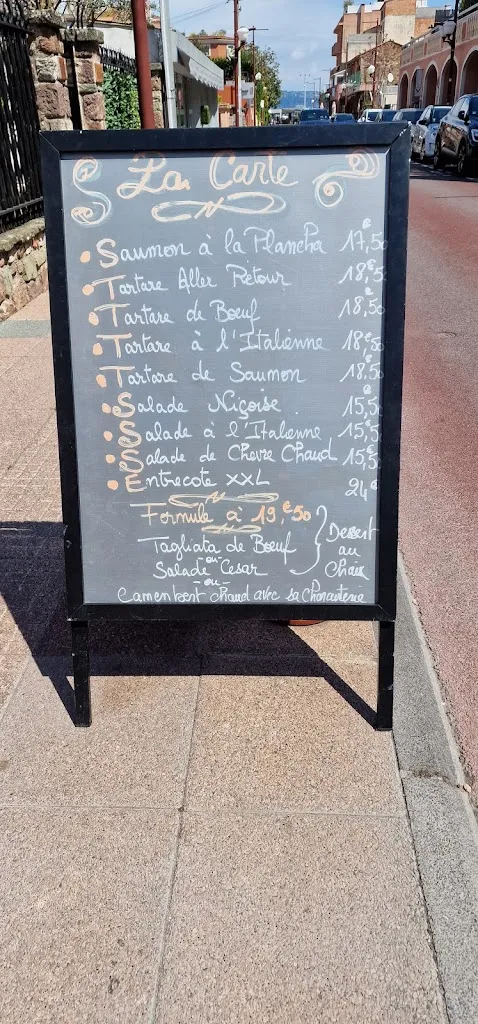 La Carte
Saumon à la Plancha 17,€50
Tartare Aller Retour 18,€5
Tartare de Boeuf 18,€50
Tartare à l'Italienne 18,€50
Tartare de Saumon 18,€50
Salade Niçoise 15,€5
Salade à l'Italienne 15,€5
Salade de Chevre Chaud 15,€5
Entrecote XXL 24€
Formule à 19,€50
Tagliata de Boeuf
ou
Salade Cesar
Dessert
au
Choix
ou
Camembert chaud avec sa Charcuterie